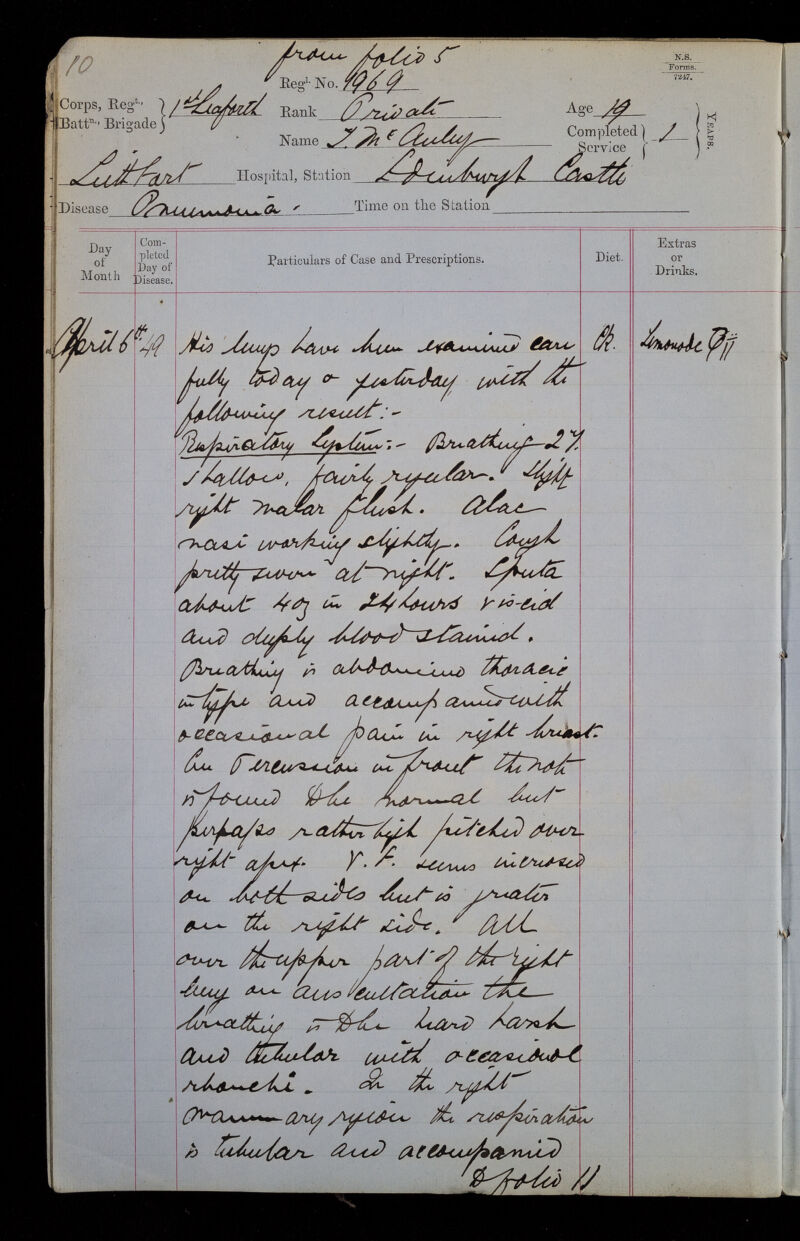 10
from folio 5
N.S.
Forms.
7247.
Regl. No. 1969
Corps, Regt., Battn., Brigade } 1st Seaforth
Rank Private
Age 19
Name T. McAuley
Completed Service } 1 } YEARS.
Leith Fort Hospital, Station Edinburgh Castle
Disease Pneumonia. Time on the Station
Day of Month
Completed Day of Disease.
Particulars of Case and Prescriptions.
Diet.
Extras or Drinks.
April 6th 49 His lungs have been examined care Ch. Lemonade Oii
fully today & yesterday with the
following result:-
Respiratory System:- Breathing 27.
shallow, fairly regular. Slight
right malar flush. Alae
nasi working slightly. Cough
pretty severe at night. Sputa
about 4oz in 24 hours viscid
and deeply blood stained.
Breathing is abdomino thoracic
in type and accompanied with
occasional pain in right breast.
On Percussion in front the note
is found to be normal but
perhaps rather high pitched over
right apex. V.F. seems increased
on both sides but is greater
on the right side. All
over the upper part of the right
lung on auscultation the
breathing is to be heard harsh
and tubular with occasional
rhonchi. In the right
mammary region the respiration
is tubular and accompanied
to folio 11